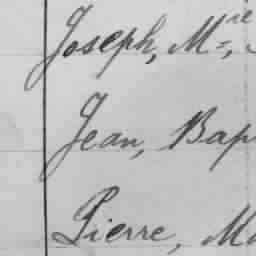 Joseph, Mie,
Jean, Bap
Pierre, Ma